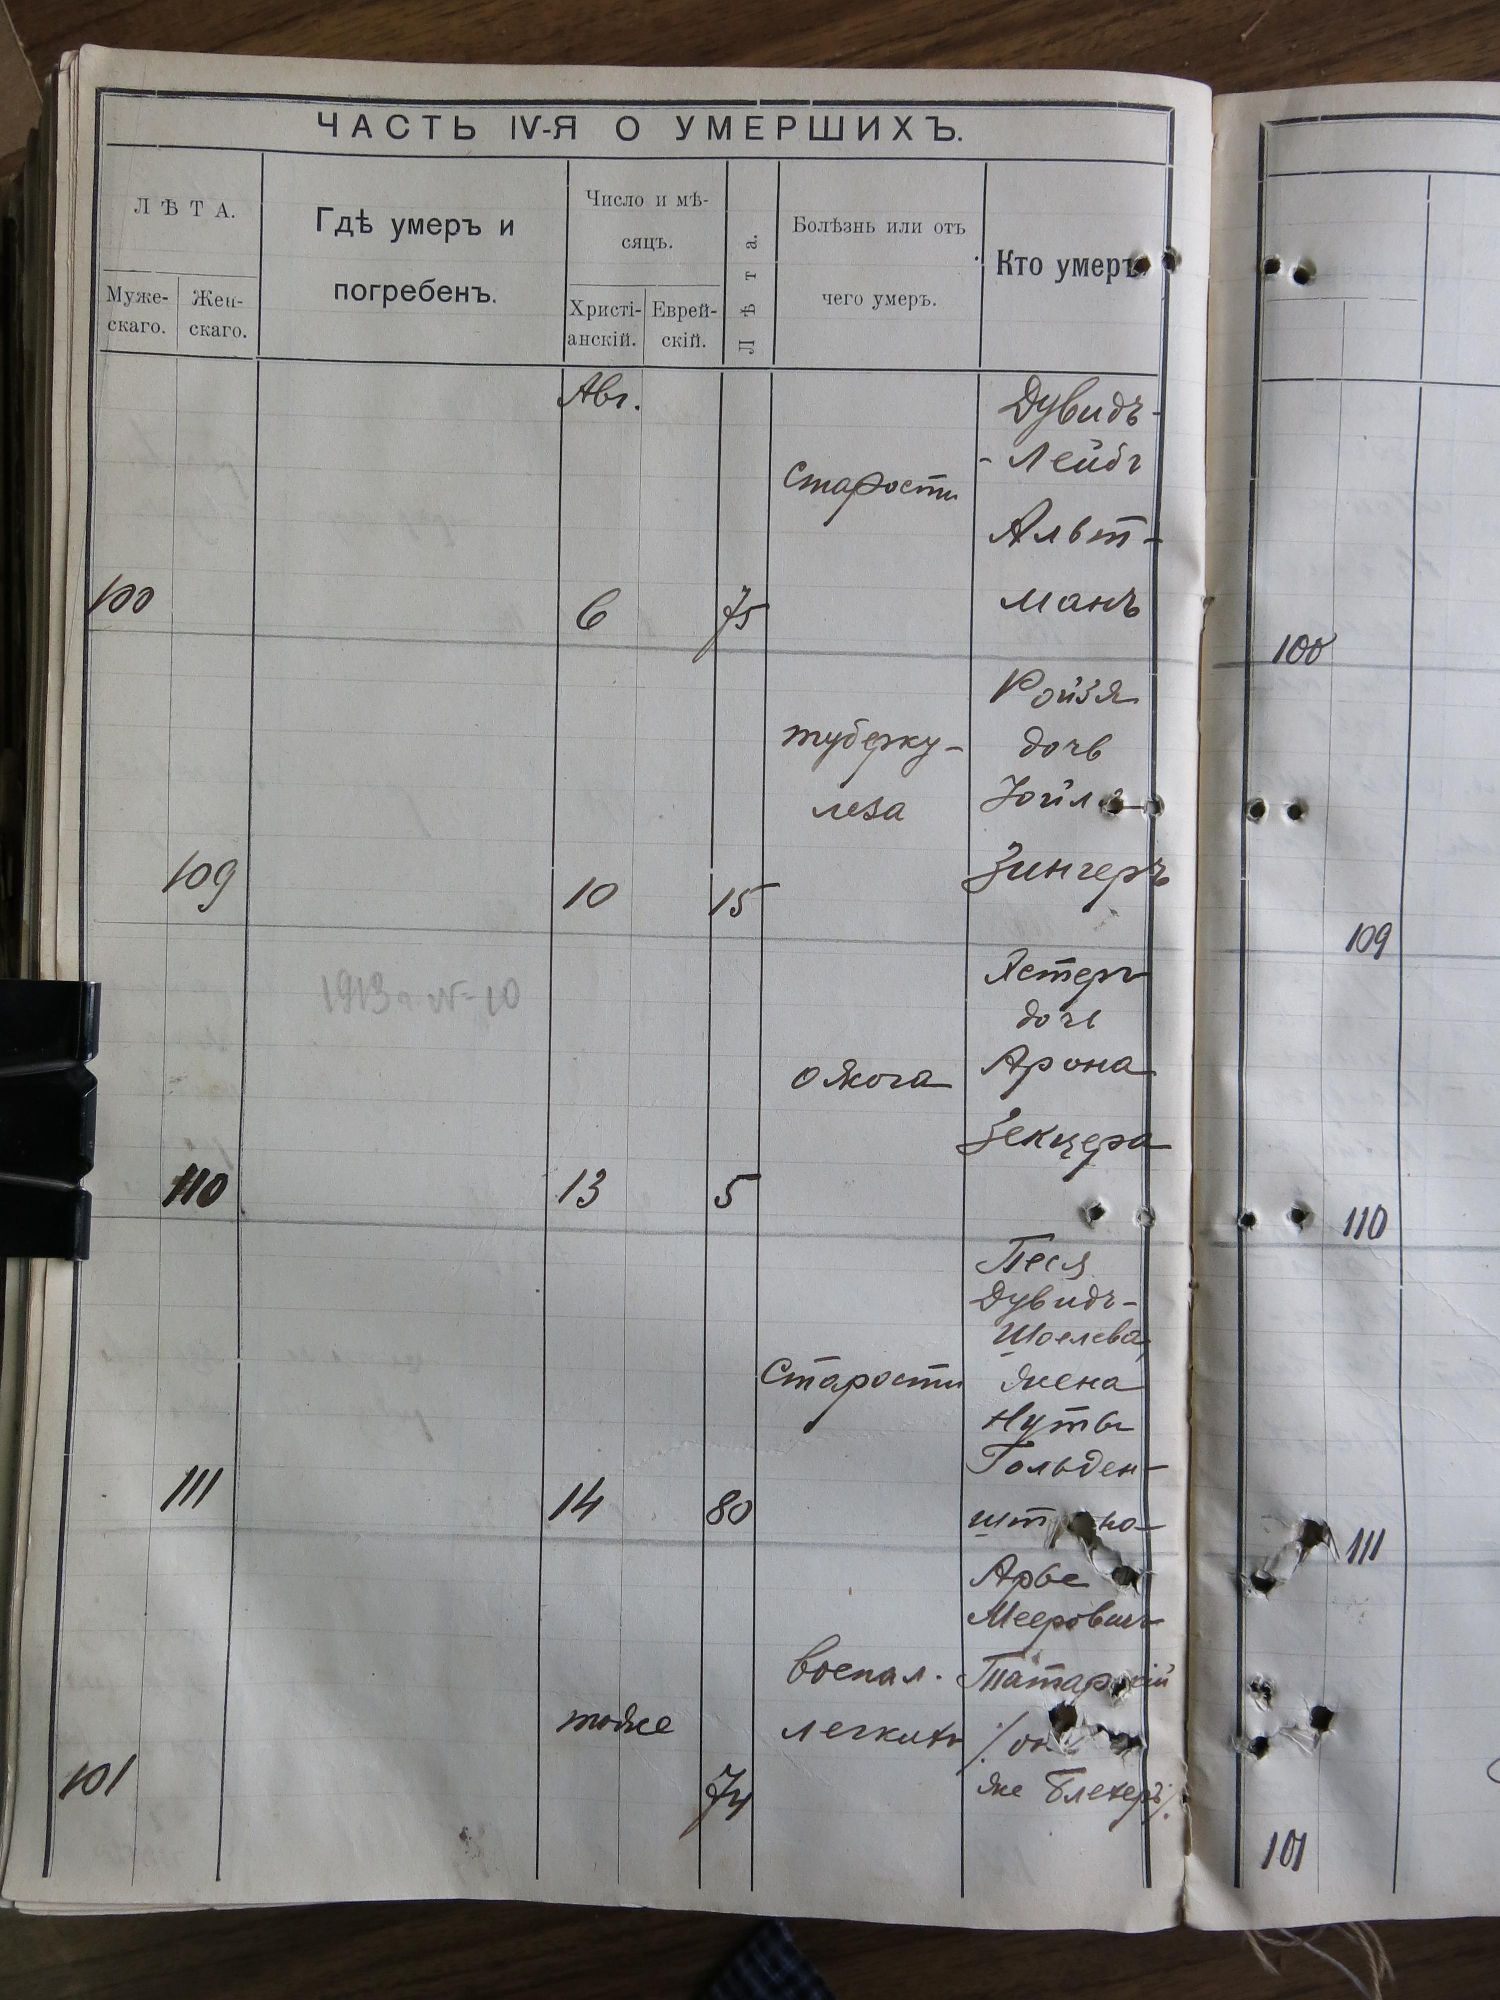 ЧАСТЬ IV-Я О УМЕРШИХЪ.
ЛѢТА.
Муже-
скаго.
Жен-
скаго.
Гдѣ умеръ и
погребенъ.
Число и мѣ-
сяцъ.
Христі-
анскій.
Еврей-
скій.
Лѣта.
Болѣзнь или отъ
чего умеръ.
Кто умеръ
Авг.
100
6
75
старости
Дувидъ-
- Лейбъ
Альт-
манъ
109
10
15
туберку-
леза
Ройзя
дочь
Зингеръ
1913 г № 10
110
13
5
ожога
Эстеръ
дочь
Арона
Зекцера
111
14
80
старости
Песя
Дувидъ-
Шоелева,
жена
Нуты
Гольден-
101
тоже
74
воспал.
легкихъ
Арье
Мееровичъ
же Блехеръ/.
100
109
110
111
101